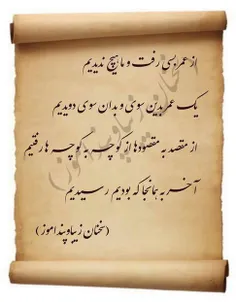 از عمر بسی رفت و ما هیچ ندیدیم
یک عمر بدین سوی و بدان سوی دویدیم
از مقصد به مقصودها از کوچه به کوچه ها رفتیم
آخر به همانجا که بودیم رسیدیم
(سخنان زیبا و پند اموز)